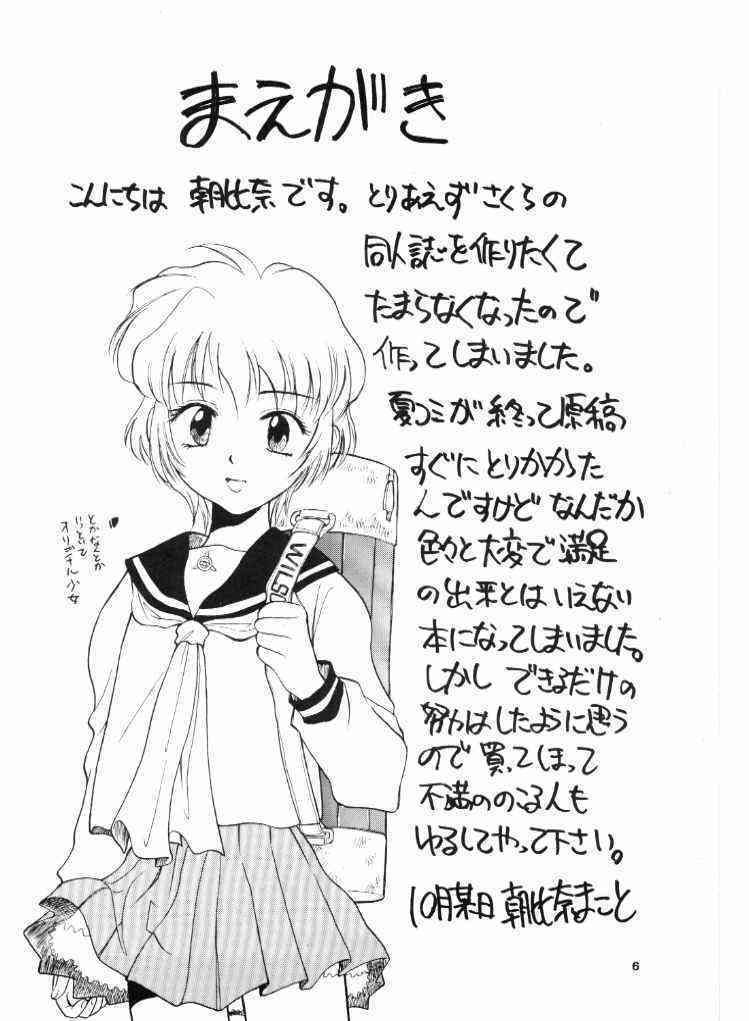 まえがき
こんにちは 朝比奈です。とりあえずさくらの
同人誌を作りたくて
たまらなくなったので
作ってしまいました。
夏コミが終って原稿
すぐにとりかかった
んですけど なんだか
色々と大変で満足
の出来とはいえない
本になってしまいました。
しかし できるだけの
努力はしたように思う
ので 買ってしまって
不満ののこる人も
ゆるしてやって下さい。
10月某日 朝比奈まこと
オリジナル少女
WILS
6